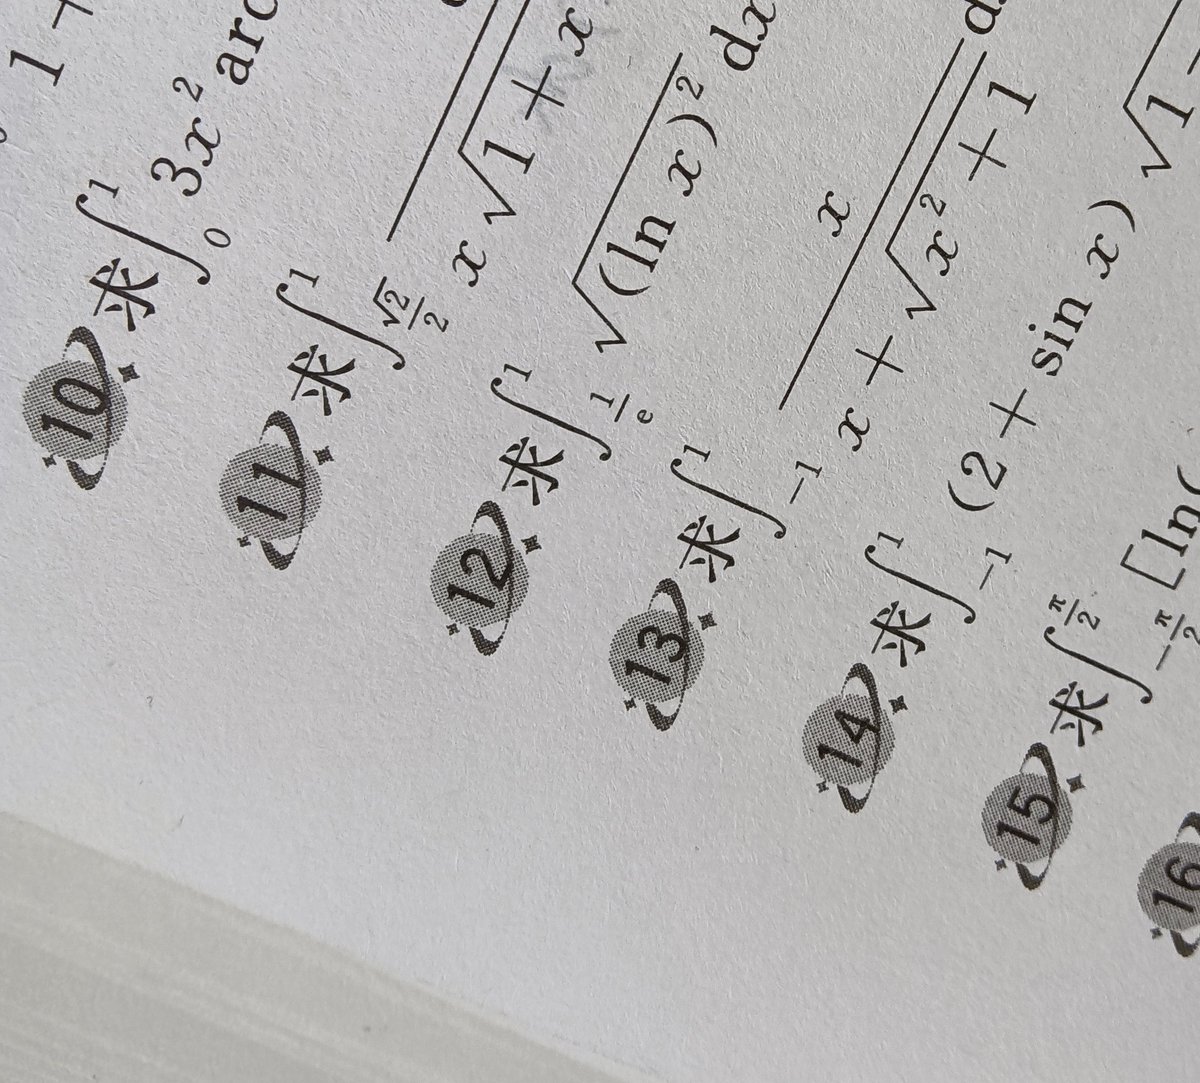 1 +
10 求 ∫₀¹ 3x² arc
11 求 ∫_{√2/2}^{1} x√1 + x
12 求 ∫_{1/e}^{1} √(ln x)² dx
13 求 ∫_{-1}^{1} x / (x + √(x² + 1)) d
14 求 ∫_{-1}^{1} (2 + sin x) √1 -
15 求 ∫_{-π/2}^{π/2} [ln(
16